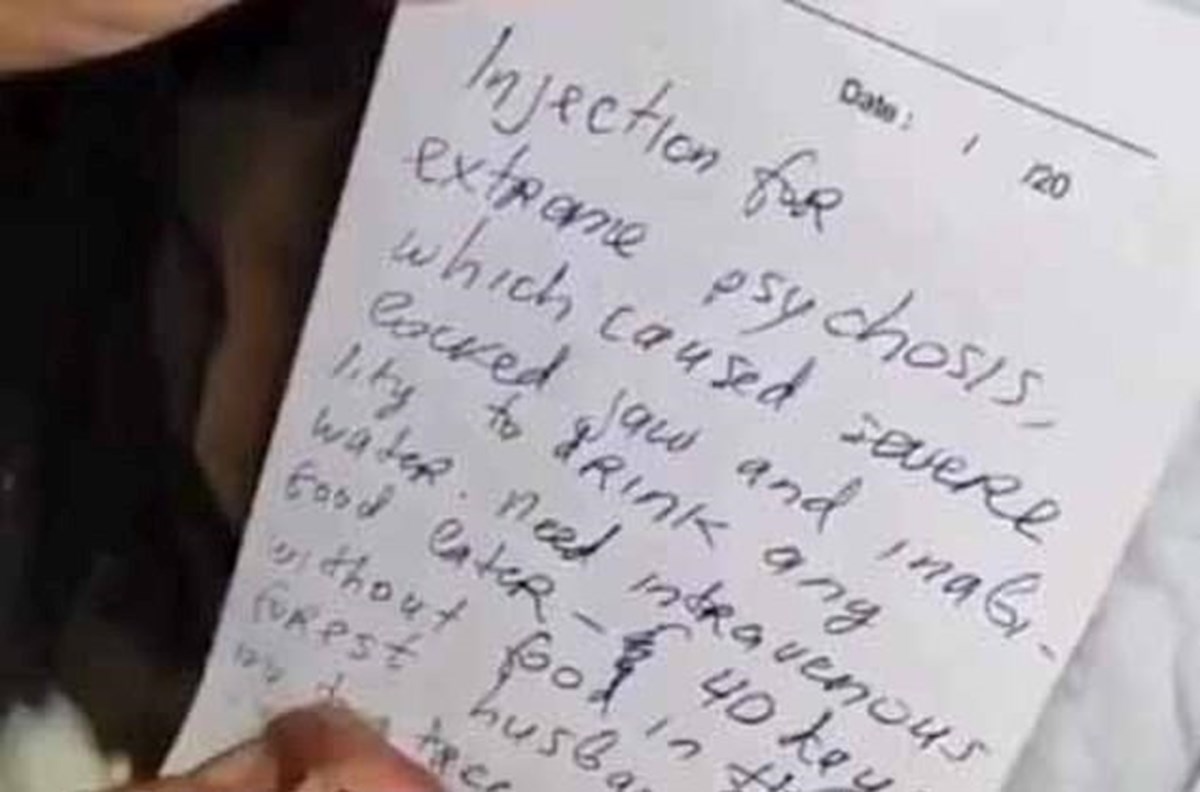 Date: / /20
Injection for
extreme psychosis,
which caused severe
locked jaw and inabi-
lity to drink any
water. need intravenous
food later - 40
without food in
forest